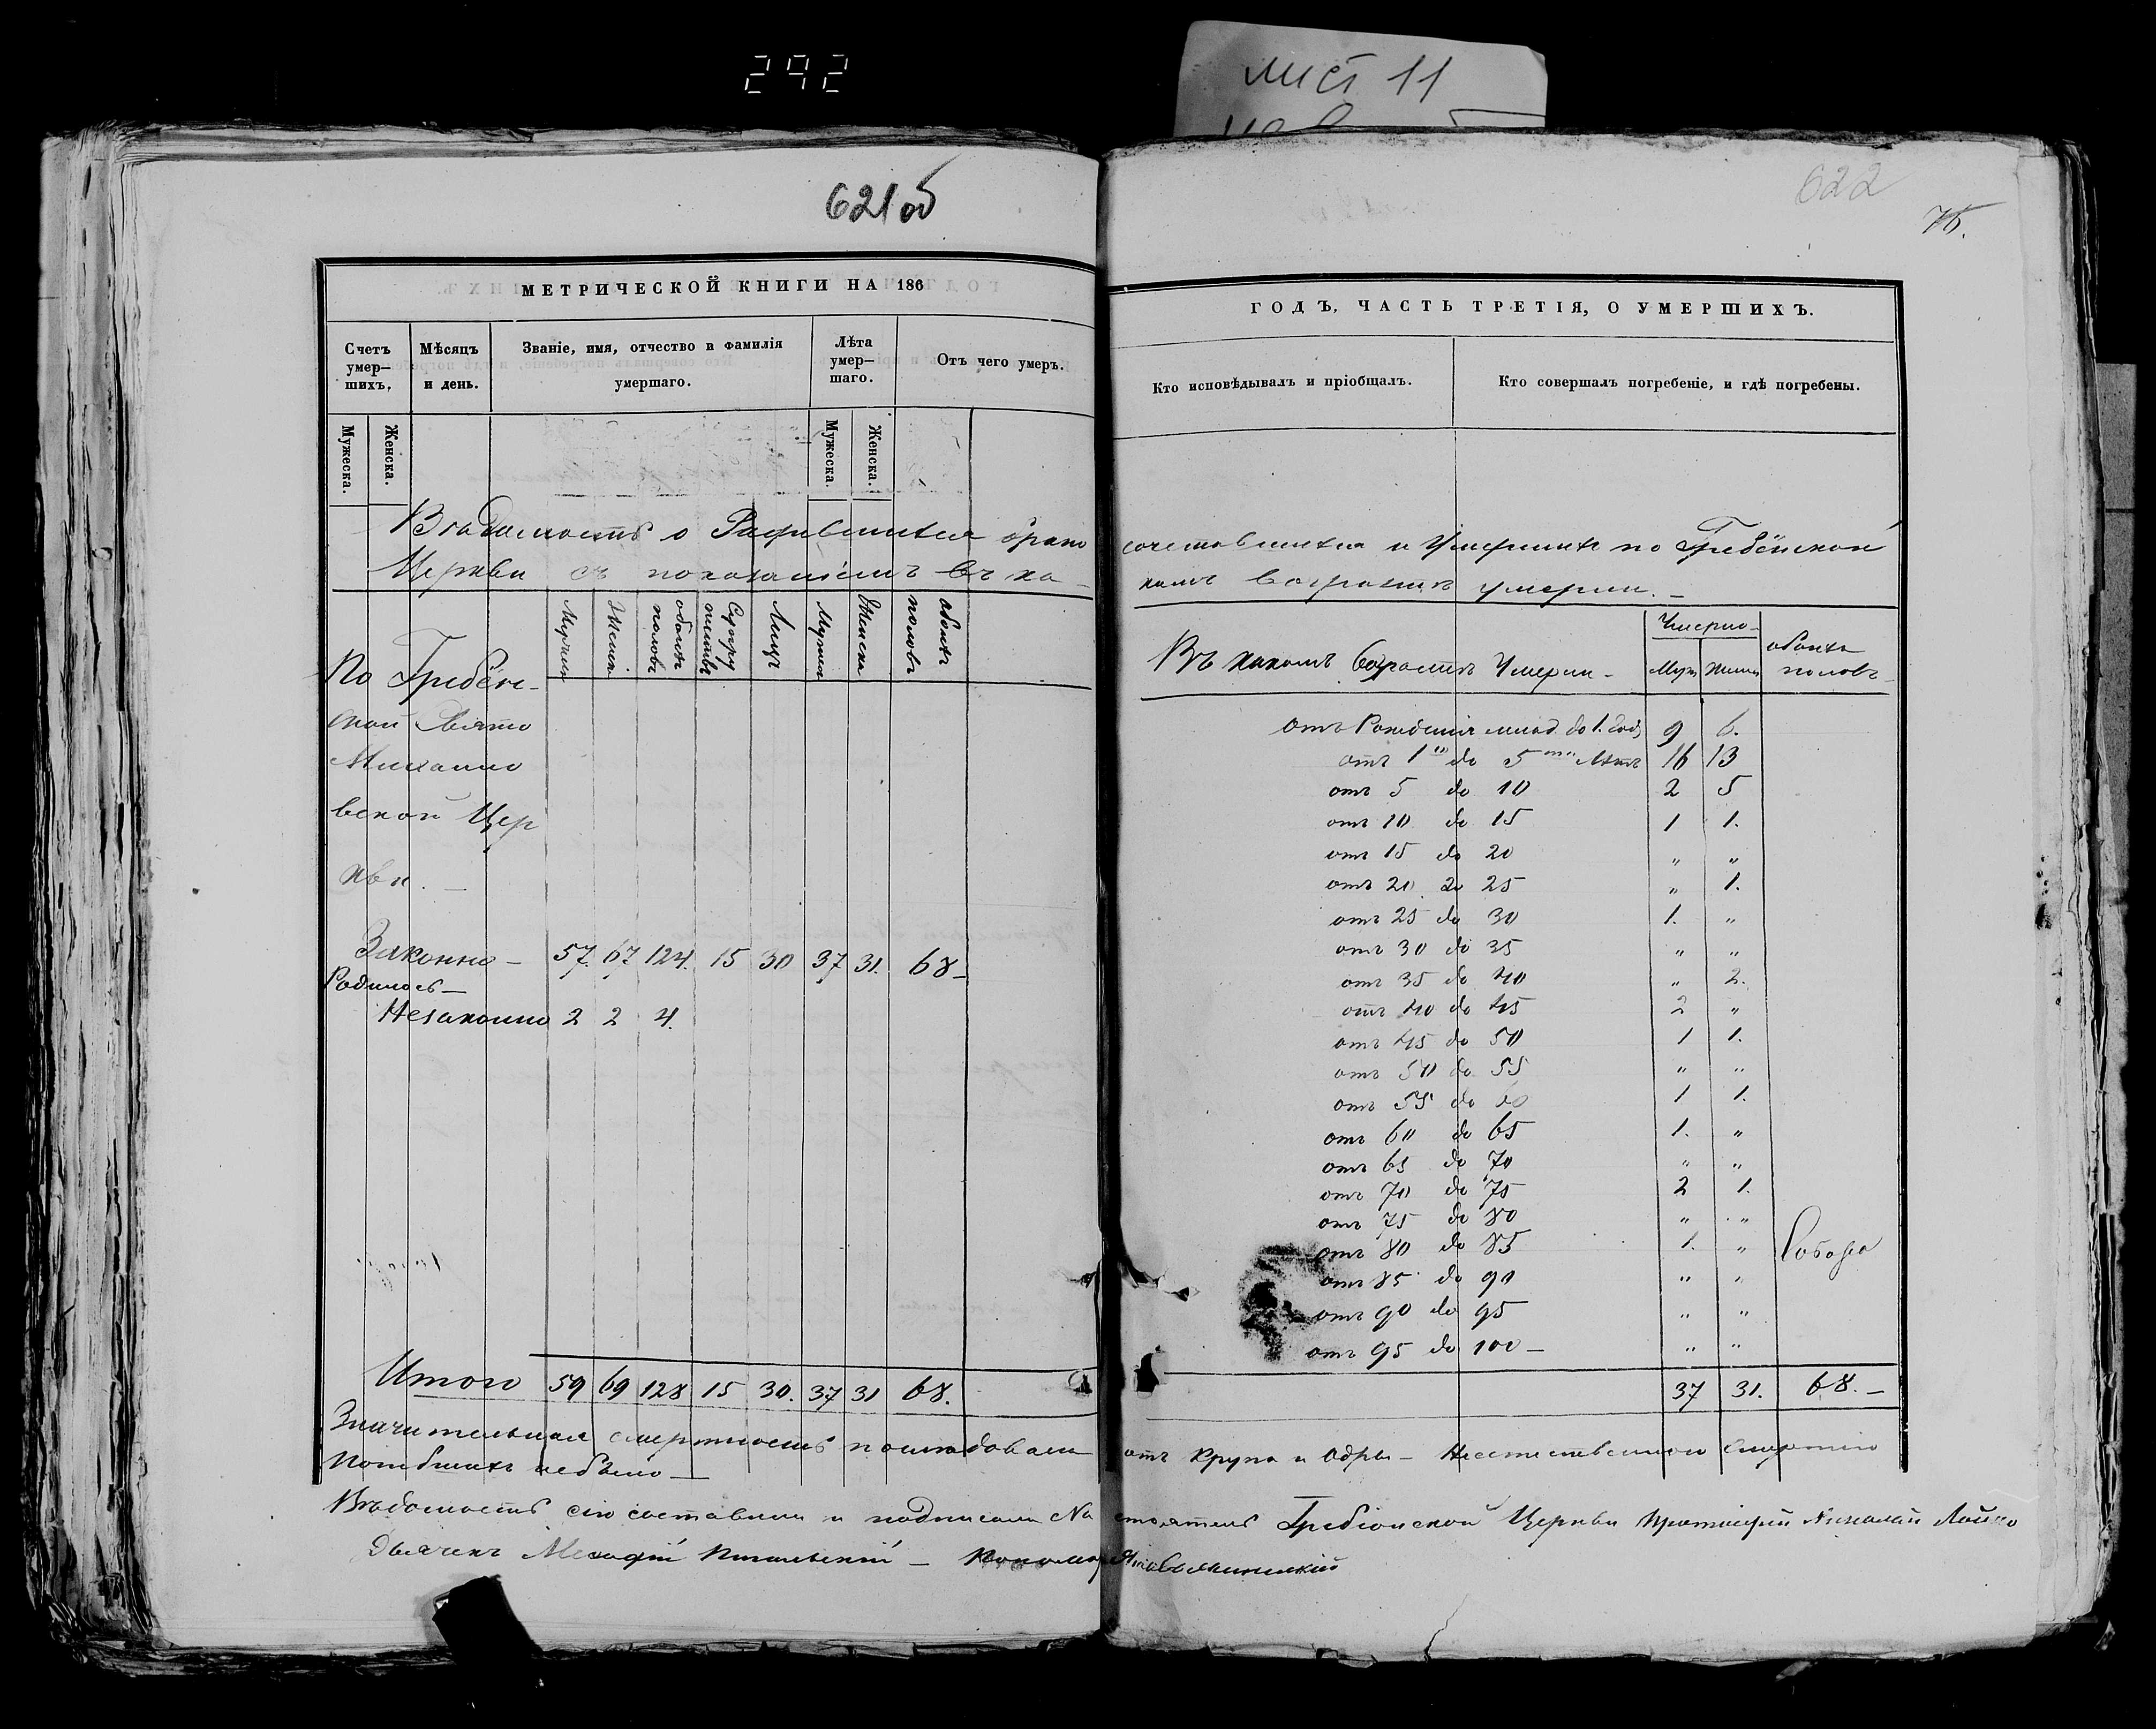 292
лист 11
621 об
622
76.
МЕТРИЧЕСКОЙ КНИГИ НА 186
Счетъ умер—шихъ.
Мѣсяцъ и день.
Званіе, имя, отчество и фамилія умершаго.
Лѣта умер—шаго.
Отъ чего умеръ.
Мужеска.
Женска.
Мужеска.
Женска.
ГОДЪ, ЧАСТЬ ТРЕТІЯ, О УМЕРШИХЪ.
Кто исповѣдывалъ и пріобщалъ.
Кто совершалъ погребеніе, и гдѣ погребены.
Вѣдомость о Родившихся брако сочетавшихся и Умершихъ по Гребёнской
Церкви съ показаніемъ въ ка- комъ возрастѣ умерли. —
Мужчин
Женска
обоихъ половъ
Супружествъ
Лицъ
Мужска
Женска
обоихъ половъ
По Гребён-
ской Свято
Михайло
вской Цер
кви. —
Законно — 57. 67. 124. 15 30 37 31. 68 —
Родилось —
Незаконно 2 2 4.
Итого 59 69 128 15 30. 37 31 68.
Въ какомъ возрастѣ Умерли —
Умерло
Муж
Женс
обоихъ половъ —
отъ Рожденія млад. до 1. год. 9 6.
отъ 1го до 5ти лѣтъ 16 13
отъ 5 до 10 2 5
отъ 10 до 15 1 1.
отъ 15 до 20 „ „
отъ 20 до 25 „ 1.
отъ 25 до 30 1. „
отъ 30 до 35 „ „
отъ 35 до 40 „ 2.
отъ 40 до 45 2 „
отъ 45 до 50 1 1.
отъ 50 до 55 „ „
отъ 55 до 60 1 1.
отъ 60 до 65 1. „
отъ 65 до 70 „ „
отъ 70 до 75 2 1.
отъ 75 до 80 „ „
отъ 80 до 85 1. „
отъ 85 до 90 „ „
отъ 90 до 95 „ „
отъ 95 до 100 — „ „
37 31. 68. —
Значительная смертность послѣдовала отъ Крупа и Одры — Неестественною Смертію
Погибшихъ небыло —
Вѣдомость сію составили и подписали Настоятель Гребіонской Церкви Протоіерей Николай
Дьячекъ — Пономарь